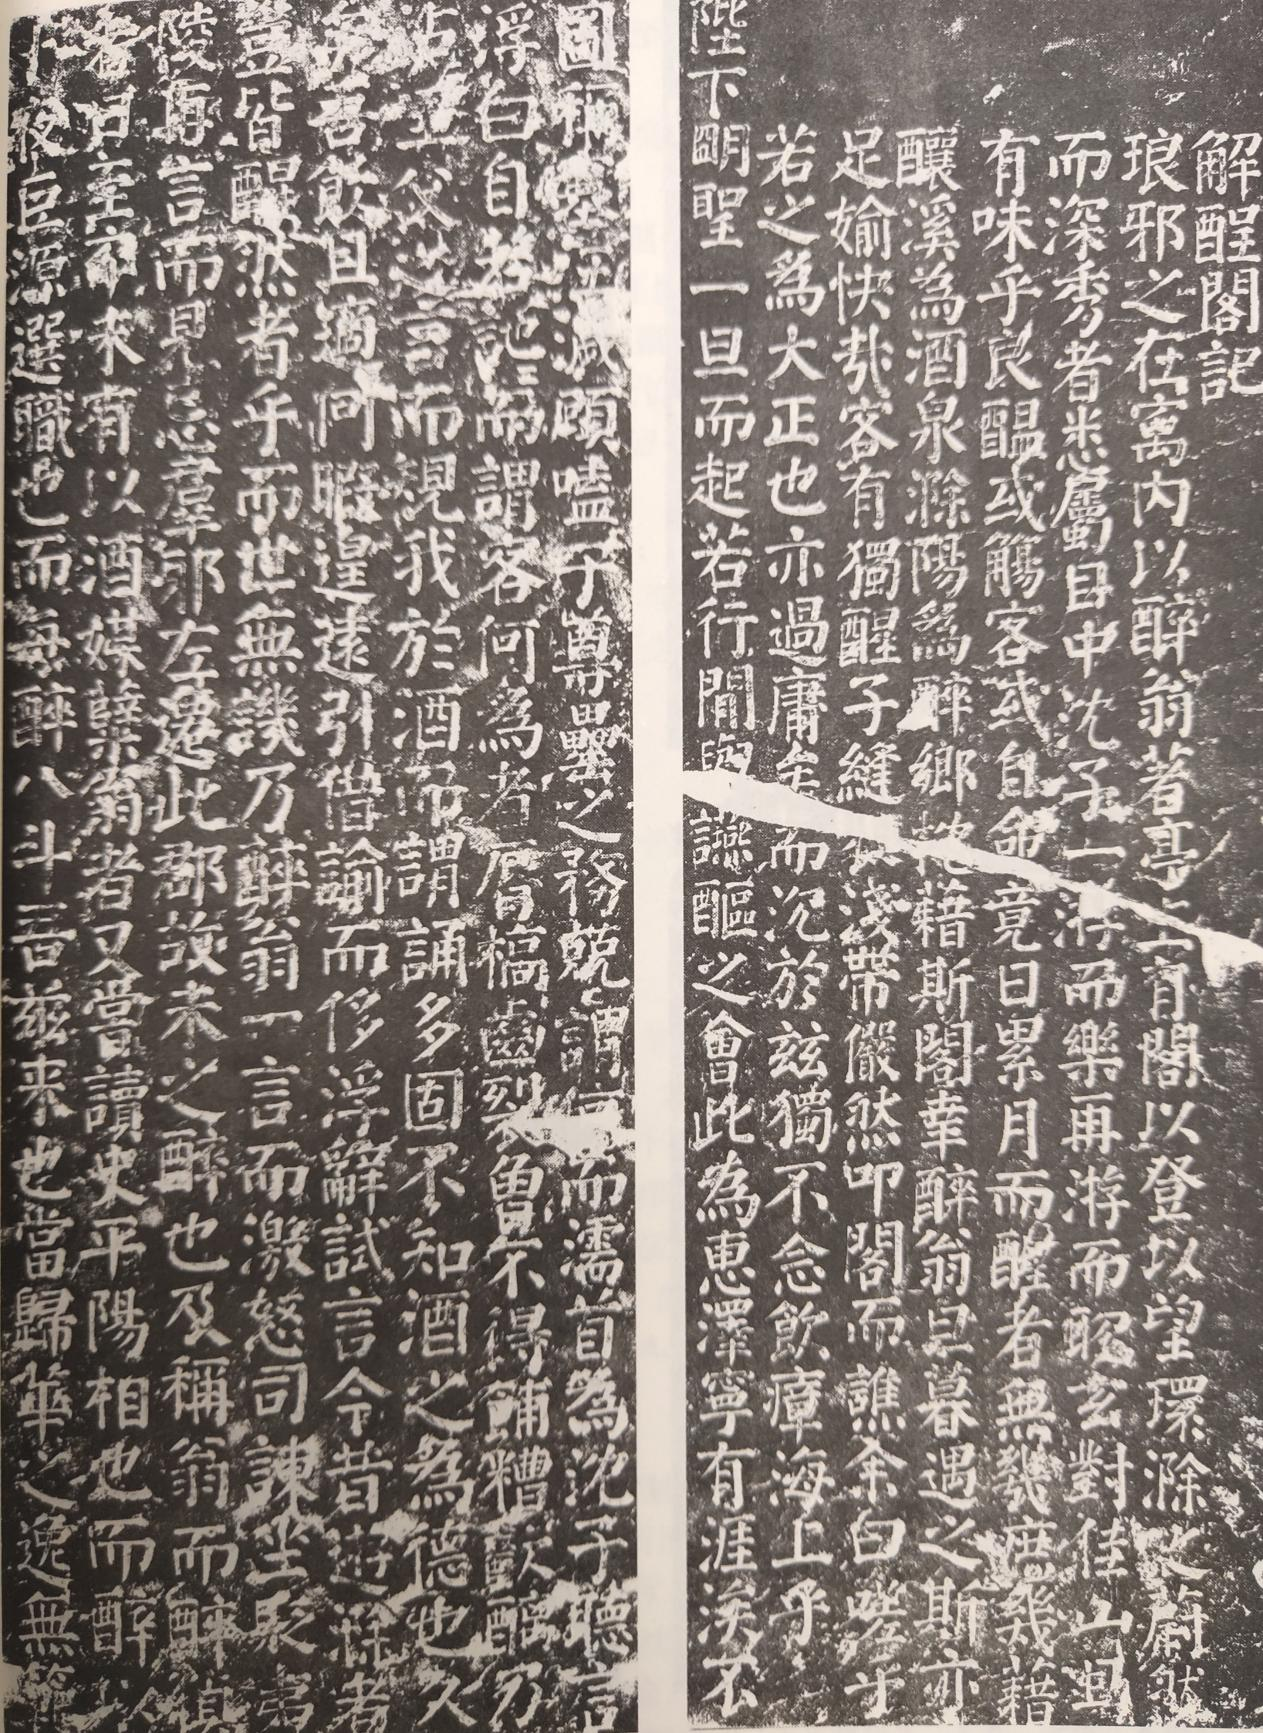 解酲閣記
琅邪之在寓內以醉翁著亭亭有閣以登以望環滁之蔚然
而深秀者悉屬目中沈子一游而樂再游而昭玄對佳山
有味乎良醞或觴客或自命竟日累月而醒者無幾庶幾藉
釀溪為酒泉滁陽為醉鄉枕藉斯閣幸醉翁旦暮遇之斯亦
足婾快哉客有獨醒子縫淺帶儼然叩閣而譙余曰嗟乎
若之為大正也亦過庸矣而沉於茲獨不念飲瘴海上乎
陛下朙聖一旦而起若行間與讌醧之會此為恵澤寧有涯涘不
圖稱塞滅頂嗑于尊罍之務兢謂而濡首為沈子聽言
浮白自若訖而謂客何為者脣槁齒魯不得餔糟歠醨乃
父之言而規我於酒所謂誦多固不知酒之為德也久
矣吾飲且適何暇遑遠引借諭而侈浮辭試言令昔遊滁者
豈皆醒然者乎而世無譏乃醉翁一言而激怒司諫坐貶夷
陵再言而見忌羣邪左遷此郡故未之醉也及稱翁而醉
者曰主司求有以酒媒糵翁者又嘗讀史平陽相也而醉以
夜巨源選職也而每醉八斗吾茲來也當歸華之逸無